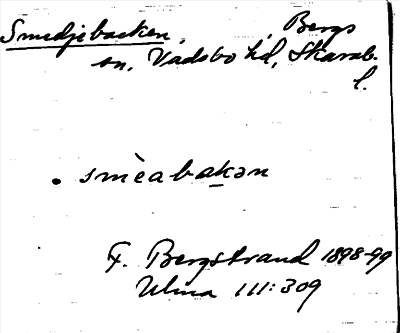 Smedjebacken, Bergs
sn, Vadsbo hd, Skarab.
l.
. smèabakən
F. Bergstrand 1898-99
Ulma 111:309